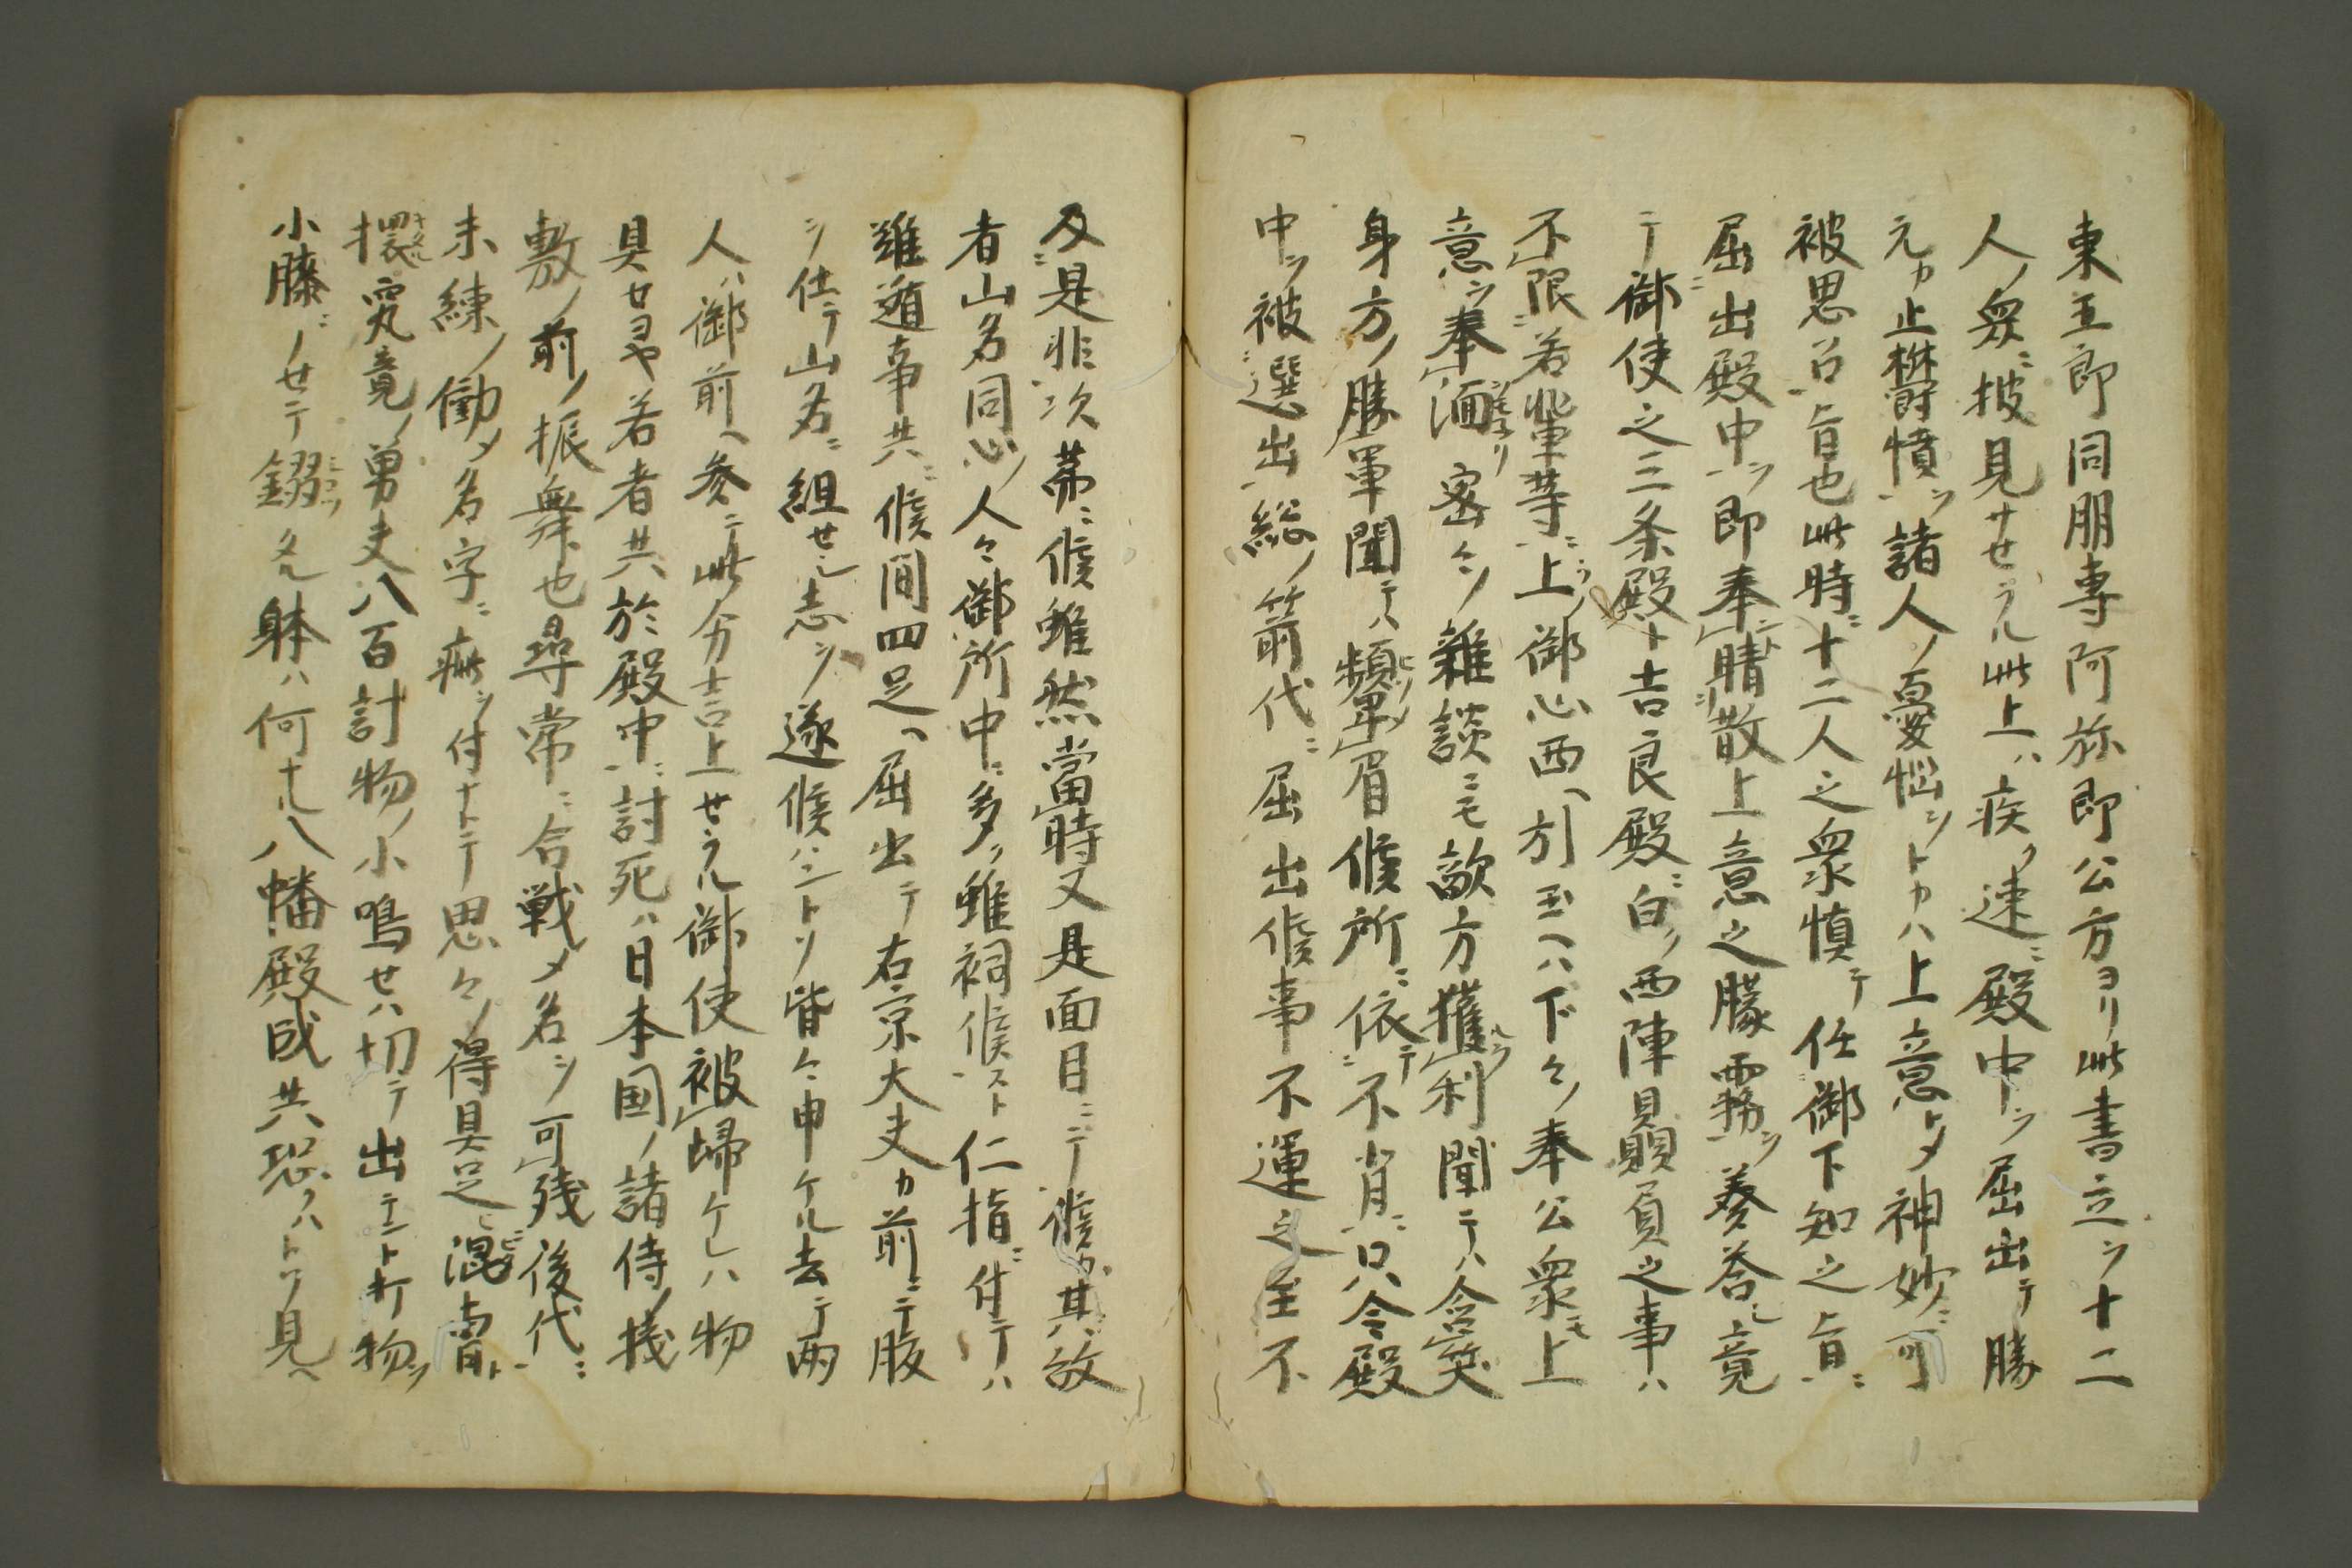 東五郎同朋専阿弥即公方ヨリ此書立ヲ十二
人ノ衆ニ披見サセラル此上ハ疾ク速ニ殿中ヲ屈出テ勝
元カ止欝憤ヲ諸人ノ憂悩シトカハ上意トメ神妙ニ可
被思召旨也此時ニ十二人之衆慎テ任御下知之旨ニ
屈出殿中ヲ即奉晴散上意之朦霧ヲ奏答シ竟
テ御使之三条殿ト吉良殿ニ白ク西陣贔負之事ハ
不限若輩等ニ上ノ御心西ヘ引玉ヘハ下々ノ奉公衆モ上
意ヲ奉湎密々ノ雜談ニモ敵方獲利聞テハ含笑
身方ノ勝軍聞テハ頻顰眉候所ニ依テ不肖ニ只今殿
中ヲ被選出総ノ箭代ニ屈出候事不運之至不
及是非次第ニ候雖然當時又是面目ニテ候其故
者山名同心ノ人々御所中ニ多ク雖祠候スト仁指ニ付テハ
難遁事共ニ候間四足ヘ屈出テ右京大夫カ前ニテ腹
ヲ仕テ山名ニ組セシ志ヲ遂候ハントソ皆々申ケル去テ両
人ハ御前ヘ参テ此分言上セラル御使被帰ケレハ物
具セヨヤ若者共於殿中ニ討死ハ日本国ノ諸侍ノ棧
敷ノ前ノ振舞也尋常ニ合戦メ名ヲ可残後代ニ
未練ノ働メ名字ニ疵ヲ付ナトテ思々ノ得具足ニ混冑ト
擐究竟ノ勇夫八百討物ノ小鳴セハ切テ出テント打物ヲ
小膝ニノセテ錣タル躰ハ何ナル八幡殿成共恐ハトソ見ヘ